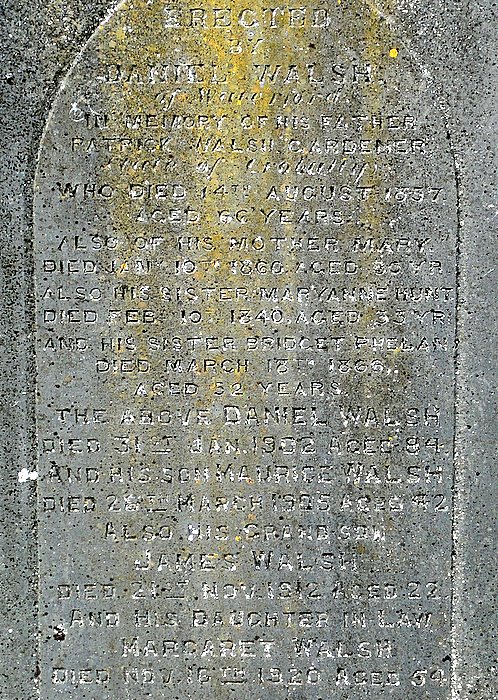 ERECTED
BY
DANIEL WALSH
of
IN MEMORY OF HIS FATHER
PATRICK WALSH GARDENER
of
WHO DIED 14TH AUGUST 1857
AGED 66 YEARS.
ALSO OF HIS MOTHER MARY
DIED JANY 10TH 1866. AGED 85 YR
ALSO HIS SISTER MARYANNE HUNT
DIED FEB 10TH 1840. AGED 33 YR
AND HIS SISTER BRIDGET PHELAN
DIED MARCH 18TH 1866.
AGED 52 YEARS.
THE ABOVE DANIEL WALSH
DIED 31ST JAN. 1902 AGED 84.
AND HIS SON MAURICE WALSH
DIED 26TH MARCH 1905 AGED 42
ALSO HIS GRANDSON
JAMES WALSH
DIED 21ST NOV. 1912 AGED 22.
AND HIS DAUGHTER IN LAW
MARGARET WALSH
DIED NOV. 16TH 1920 AGED 54